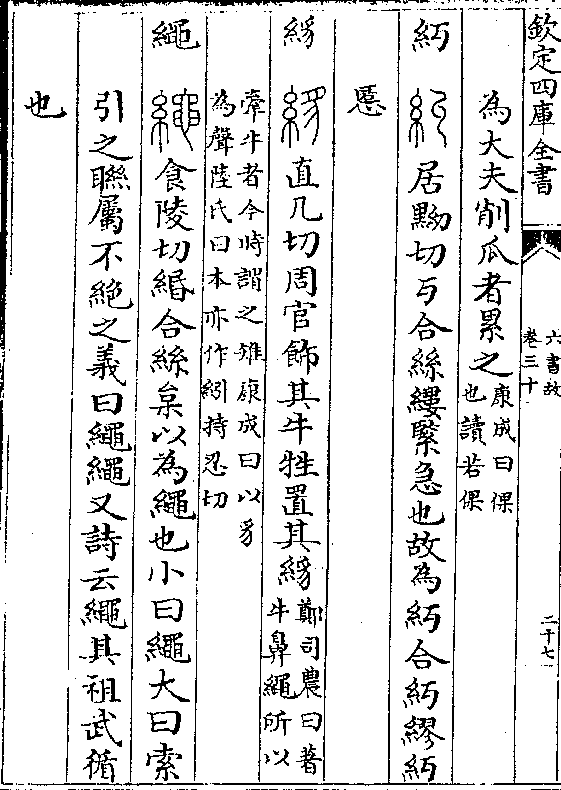 欽定四庫全書
六書故
卷三十
二十七
為大夫削瓜者累之康成曰倮也讀若倮
糾 居黝切丂合絲縷緊急也故為糾合糾繆糾
慝
𦃇 直几切周官飾其牛牲置其𦃇鄭司農曰著牛鼻繩所以
牽牛者今時謂之雉康成曰以豸為聲陸氏曰本亦作紖持忍切
繩 食陵切緡合絲枲以為繩也小曰繩大曰索
引之聮屬不絶之義曰繩繩又詩云繩其祖武循
也